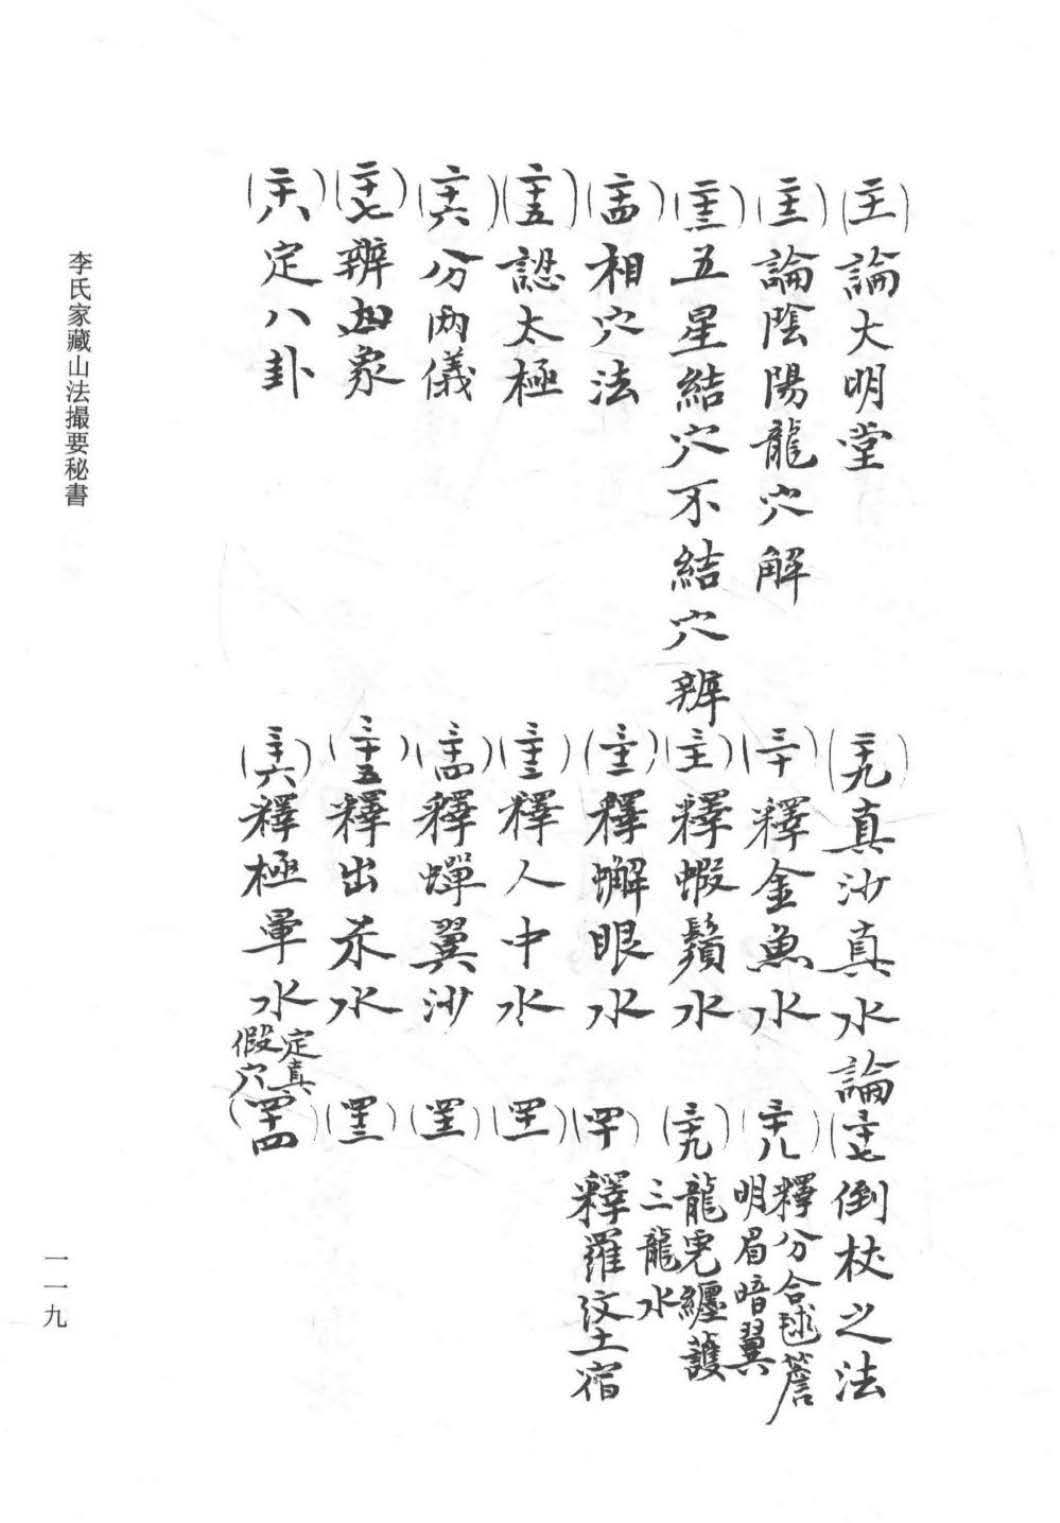 (二十一)論大明堂
(二十二)論陰陽龍穴解
(二十三)五星結穴不結穴辨
(二十四)相穴法
(二十五)認太極
(二十六)分兩儀
(二十七)辨四象
(二十八)定八卦
(二十九)真沙真水論
(三十)釋金魚水
(三十一)釋蝦鬚水
(三十二)釋蠏眼水
(三十三)釋人中水
(三十四)釋蟬翼沙
(三十五)釋出水
(三十六)釋極暈水定真假穴
(三十七)倒杖之法
(三十八)釋分合毬簷明眉暗翼
(三十九)龍虎纒護三龍水
(四十)釋羅紋土宿
(四十一)
(四十二)
(四十三)
(四十四)
李氏家藏山法撮要秘書
一一九